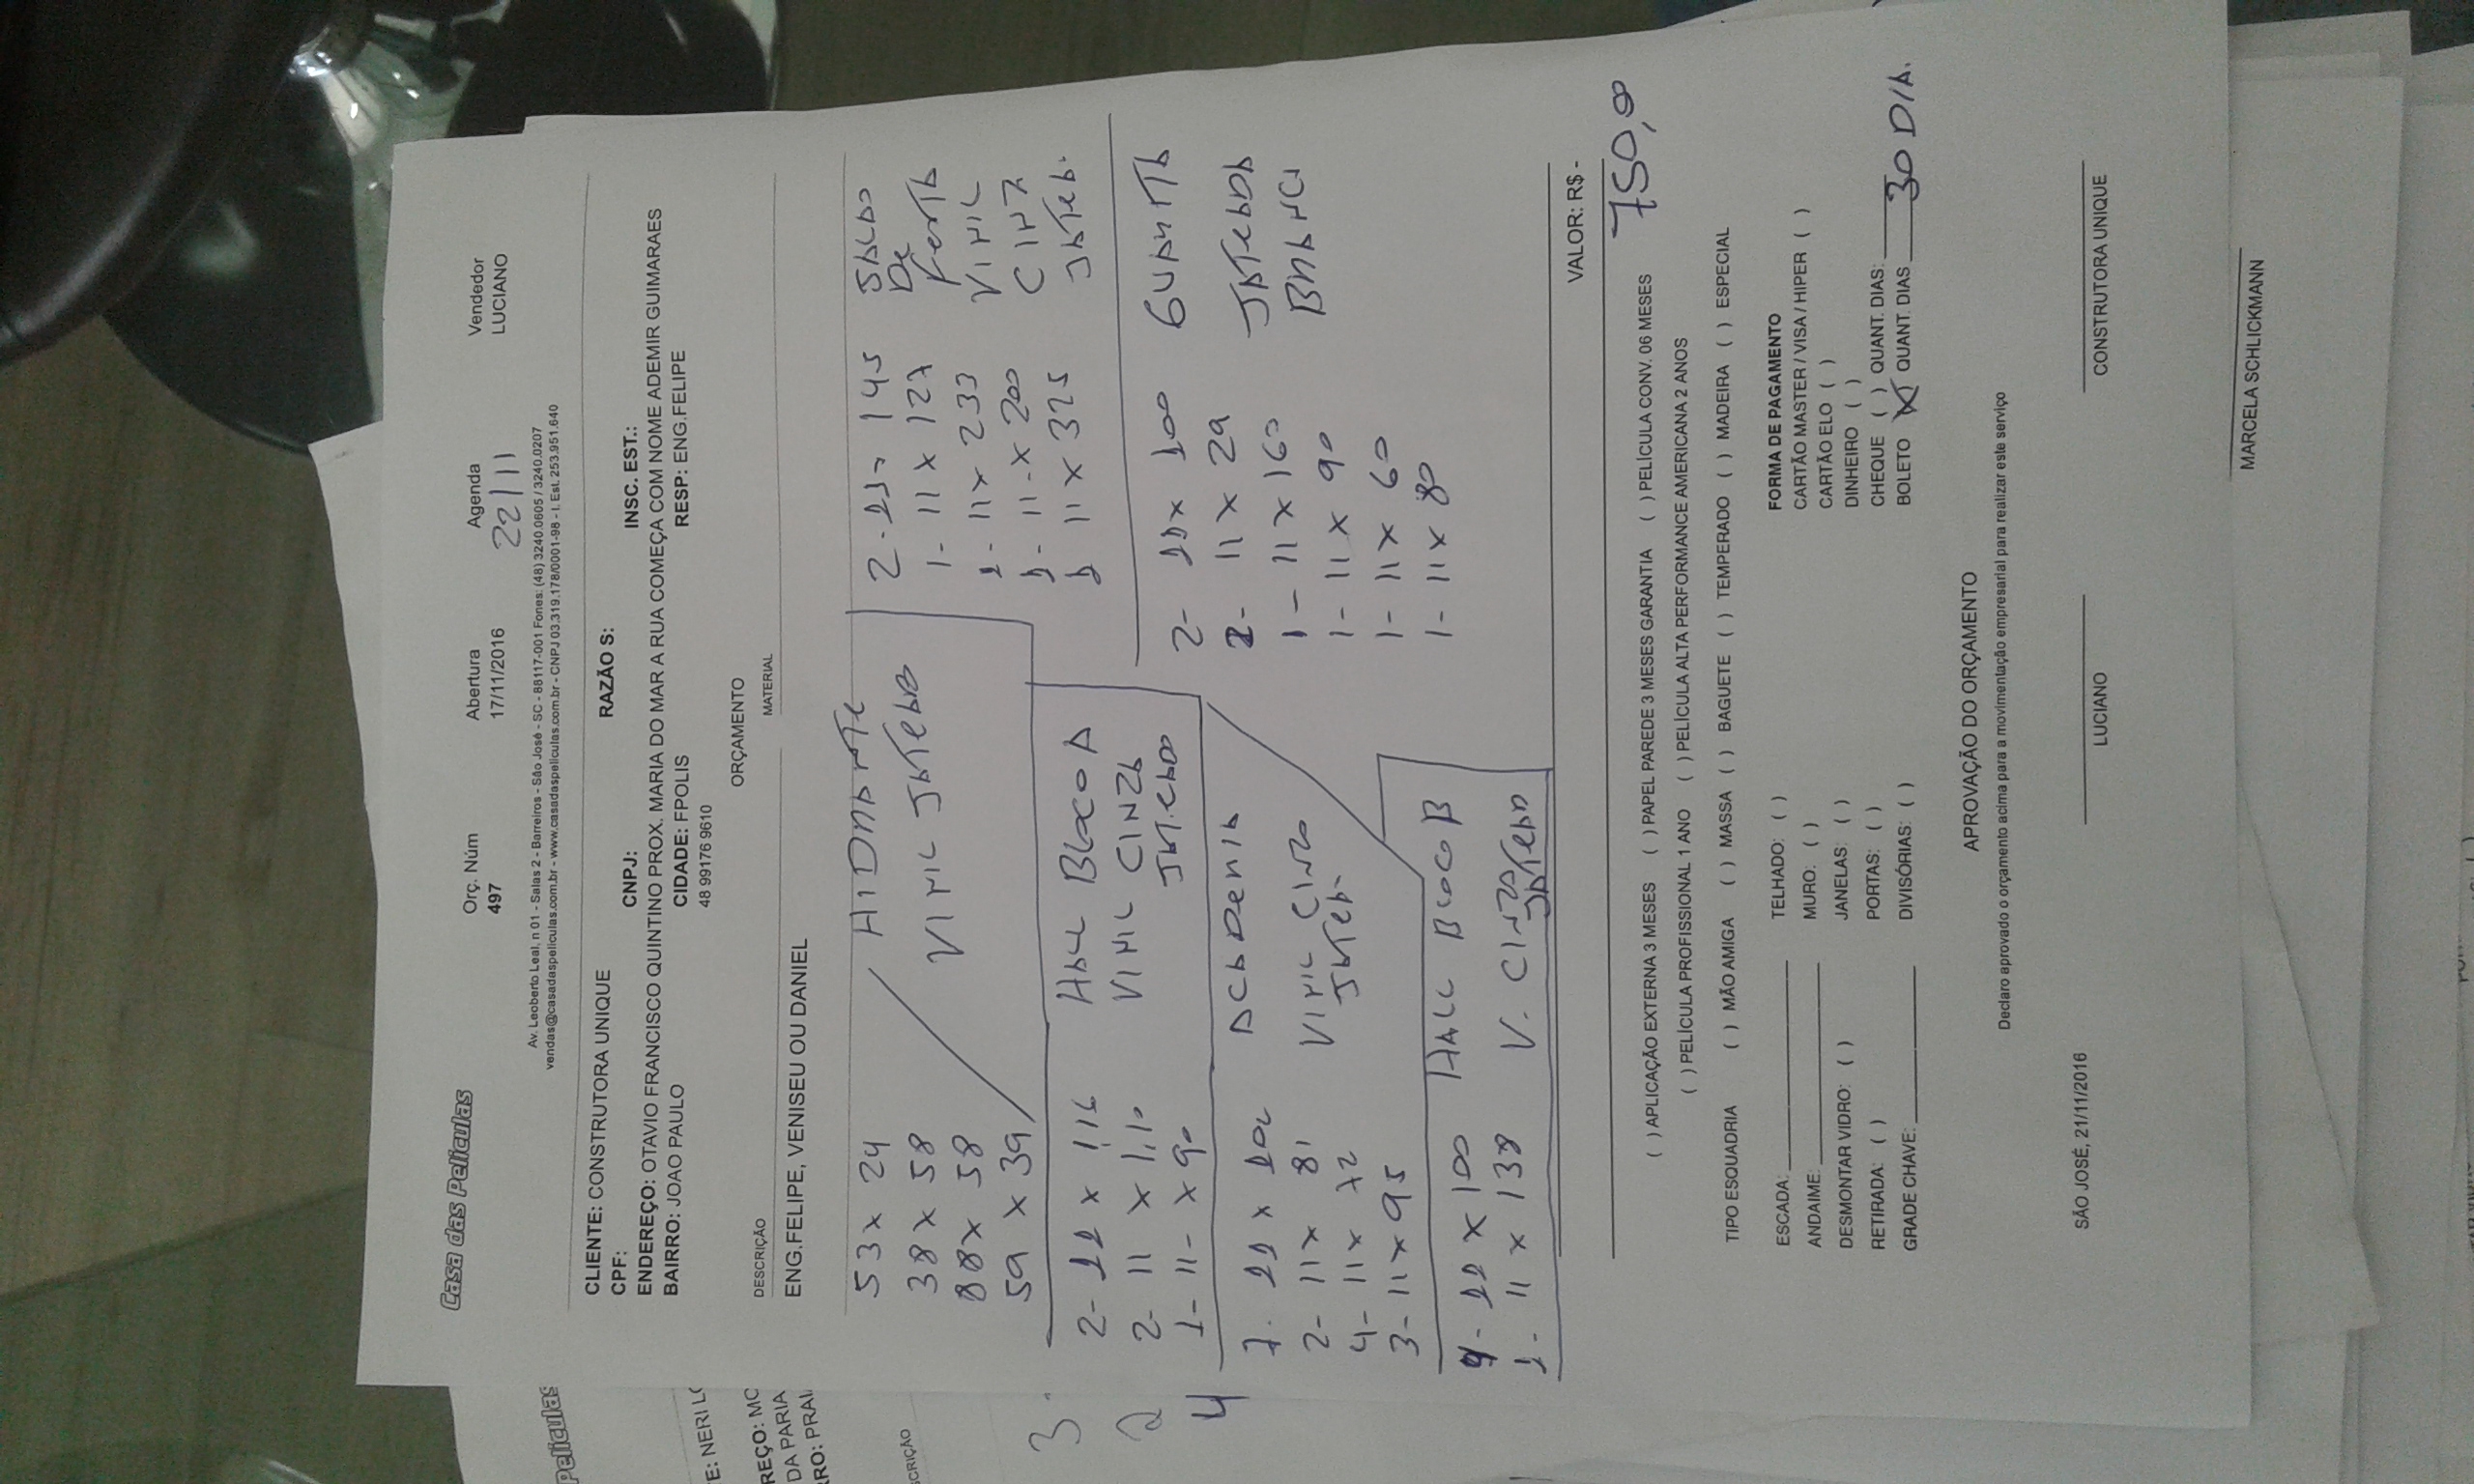 Casa das Películas
Orç. Núm Abertura Agenda Vendedor
497 17/11/2016 22/11 LUCIANO
Av. Leoberto Leal, n 01 - Salas 2 - Barreiros - São José - SC - 88117-001 Fones: (48) 3240.0605 / 3240.0207
vendas@casadaspeliculas.com.br - www.casadaspeliculas.com.br - CNPJ 03.319.178/0001-98 - I. Est. 253.951.640
CLIENTE: CONSTRUTORA UNIQUE RAZÃO S:
CPF: CNPJ: INSC. EST.:
ENDEREÇO: OTAVIO FRANCISCO QUINTINO PROX. MARIA DO MAR A RUA COMEÇA COM NOME ADEMIR GUIMARAES
BAIRRO: JOAO PAULO CIDADE: FPOLIS RESP: ENG.FELIPE
48 99176 9610
ORÇAMENTO
DESCRIÇÃO MATERIAL
ENG.FELIPE, VENISEU OU DANIEL
53 x 24
38 x 58
88 x 58
59 x 39
VINIL JATEADO
2 - 11 x 145
1 - 11 x 127
1 - 11 x 233
1 - 11 - x 200
1 11 x 325
SALÃO
DE
FESTA
VINIL
CINZ
JATEA.
2 - 11 x 116
2 - 11 x 1,10
1 - 11 - x 90
HALL BLOCO A
VINIL CINZA
JAT.EADO
7 - 11 x 102
2 - 11 x 81
4 - 11 x 72
3 - 11 x 95
ACADEMIA
VINIL CINZA
JATEA.
4 - 11 x 100
1 - 11 x 138
HALL BLOCO B
V. CINZA
JATEADO
2 - 11 x 100
2 - 11 x 29
1 - 11 x 160
1 - 11 x 90
1 - 11 x 60
1 - 11 x 80
JATEADA
VALOR: R$-
750,00
( ) APLICAÇÃO EXTERNA 3 MESES ( ) PAPEL PAREDE 3 MESES GARANTIA ( ) PELÍCULA CONV. 06 MESES
( ) PELÍCULA PROFISSIONAL 1 ANO ( ) PELÍCULA ALTA PERFORMANCE AMERICANA 2 ANOS
TIPO ESQUADRIA ( ) MÃO AMIGA ( ) MASSA ( ) BAGUETE ( ) TEMPERADO ( ) MADEIRA ( ) ESPECIAL
ESCADA: TELHADO: ( )
ANDAIME: MURO: ( )
DESMONTAR VIDRO: ( ) JANELAS: ( )
RETIRADA: ( ) PORTAS: ( )
GRADE CHAVE: DIVISÓRIAS: ( )
FORMA DE PAGAMENTO
CARTÃO MASTER / VISA / HIPER ( )
CARTÃO ELO ( )
DINHEIRO ( )
CHEQUE ( ) QUANT. DIAS:
BOLETO (X) QUANT. DIAS 30 DIA.
APROVAÇÃO DO ORÇAMENTO
Declaro aprovado o orçamento acima para a movimentação empresarial para realizar este serviço
SÃO JOSÉ, 21/11/2016
LUCIANO CONSTRUTORA UNIQUE
MARCELA SCHLICKMANN
Películas
E: NERI
REÇO: MC
DA PARIA
RRO: PRAI
SCRIÇÃO
3
2
4